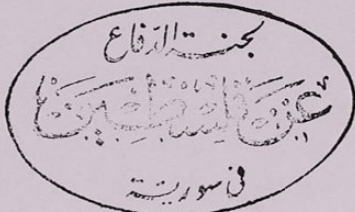 لجنة الدفاع
عن فلسطين
في سورية